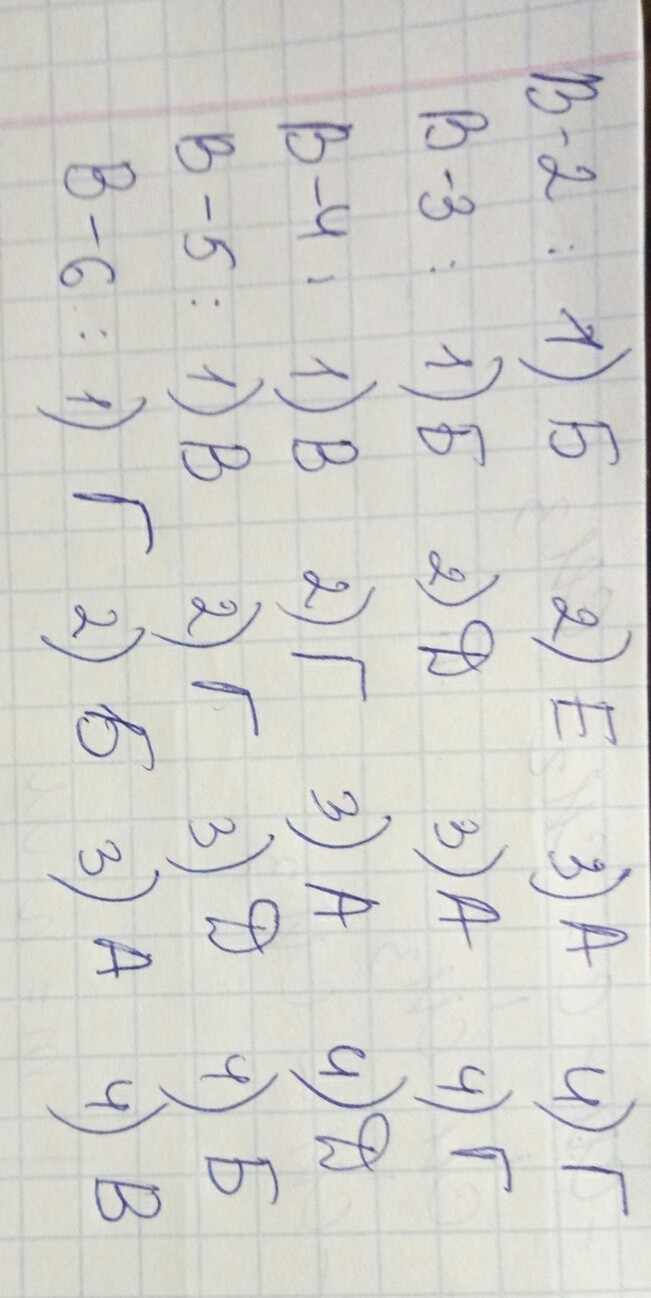 В-2: 1) Б 2) Е 3) А 4) Г
В-3: 1) Б 2) Д 3) А 4) Г
В-4: 1) В 2) Г 3) А 4) Д
В-5: 1) В 2) Г 3) Д 4) Б
В-6: 1) Г 2) Б 3) А 4) В